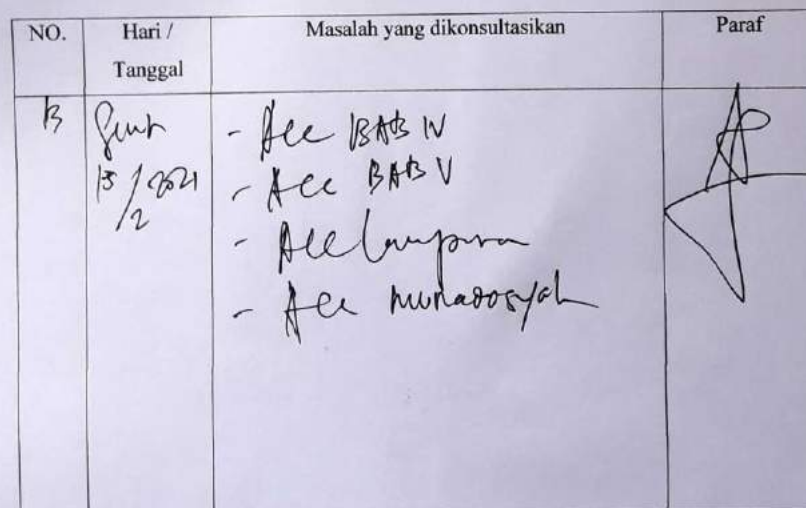 NO.
Hari /
Tanggal
Masalah yang dikonsultasikan
Paraf
15 / 2021
/2
- Acc BAB IV
- Acc BAB V
- Acc lampiran
- Acc munaqosyah